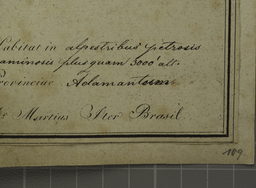 Habitat in alpestribus petrosis
graminosis plus quam 3000' alt.
Provinciae Adamantum
Martius Iter Brasil
109